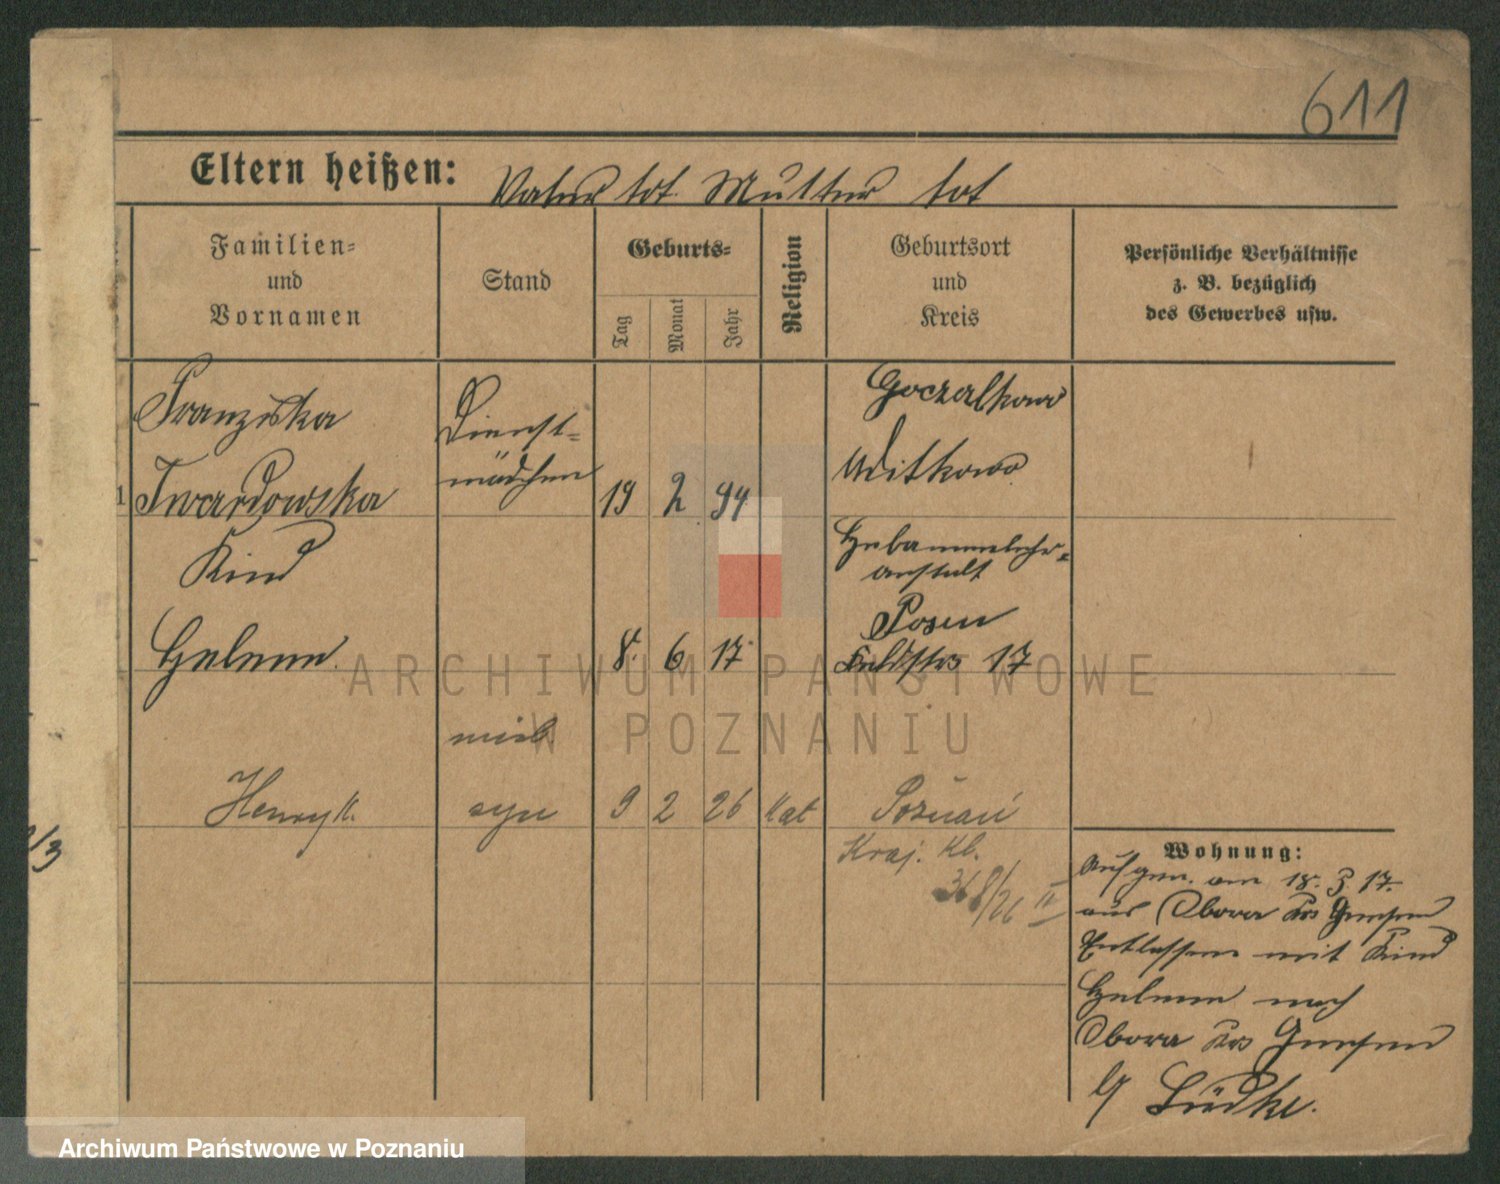 611
Eltern heißen: Vater tot Mutter tot
Familien=
und
Vornamen
Stand
Geburts=
Tag
Monat
Jahr
Religion
Geburtsort
und
Kreis
Persönliche Verhältnisse
z. B. bezüglich
des Gewerbes usw.
Franziska
Twardowska
Dienst=
mädchen
19 2 94
Goczalkowo
Witkowo
1
Kind
Helene
8. 6 17
Hebammelehr=
anstalt
Posen
Feldstrs 17
Henryk.
syn
9 2 26 kat
Poznań
Kraj. Kl.
368/26 II
/3
Wohnung:
Aufgen. am 18. 3. 17.
aus Obora Krs Gnesen
Entlassen mit Kind
Helene nach
Obora Krs Gnesen
G Lüdke.
ARCHIWUM PAŃSTWOWE
W POZNANIU
Archiwum Państwowe w Poznaniu